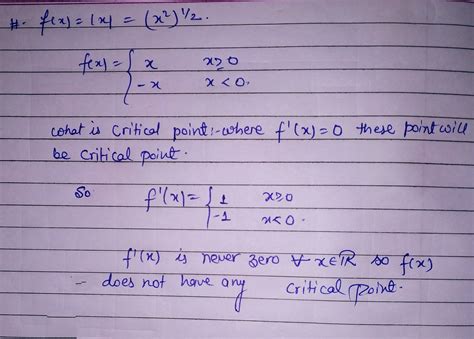 #. f(x) = |x| = (x²)^1/2.
f(x) = { x x ≥ 0
-x x < 0.
what is critical point:- where f'(x) = 0 these point will
be critical point.
So f'(x) = { 1 x ≥ 0
-1 x < 0.
f'(x) is never zero ∀ x ∈ ℝ so f(x)
- does not have any critical point.